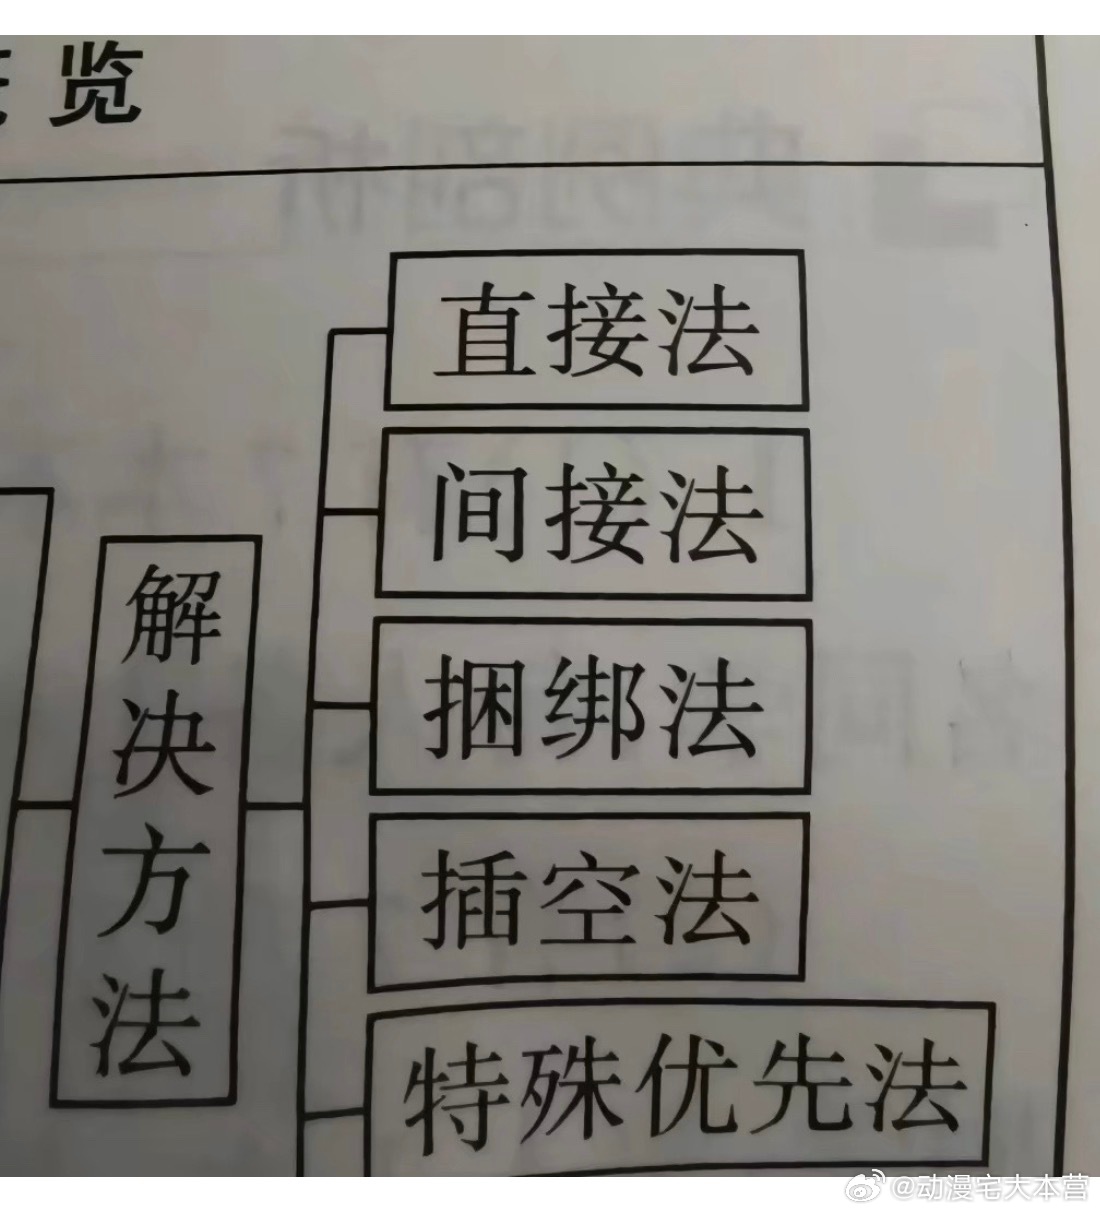 览
直接法
间接法
捆绑法
插空法
特殊优先法
解决方法
典例剖析
@动漫宅大本营